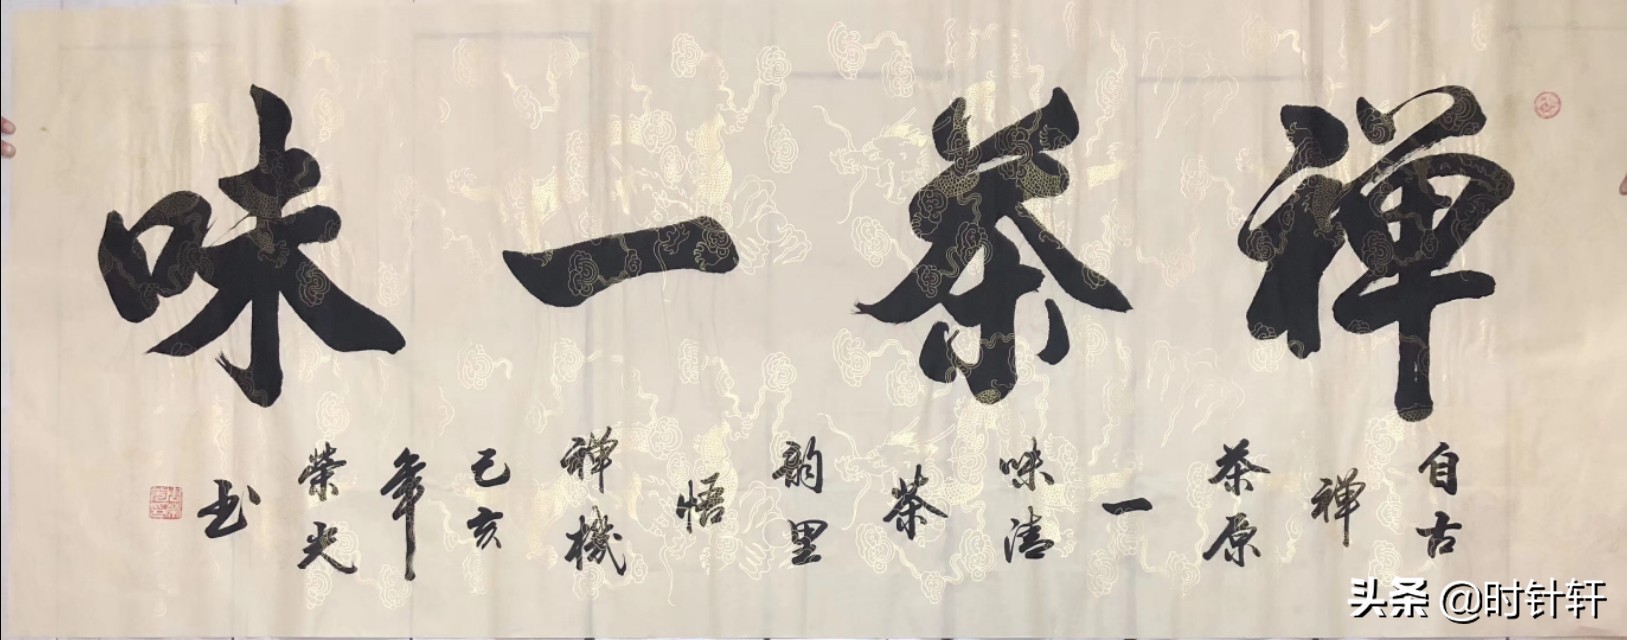 禅茶一味
自古禅茶原一味清茶韵里悟禅機己亥年榮光书
头条 @时针轩